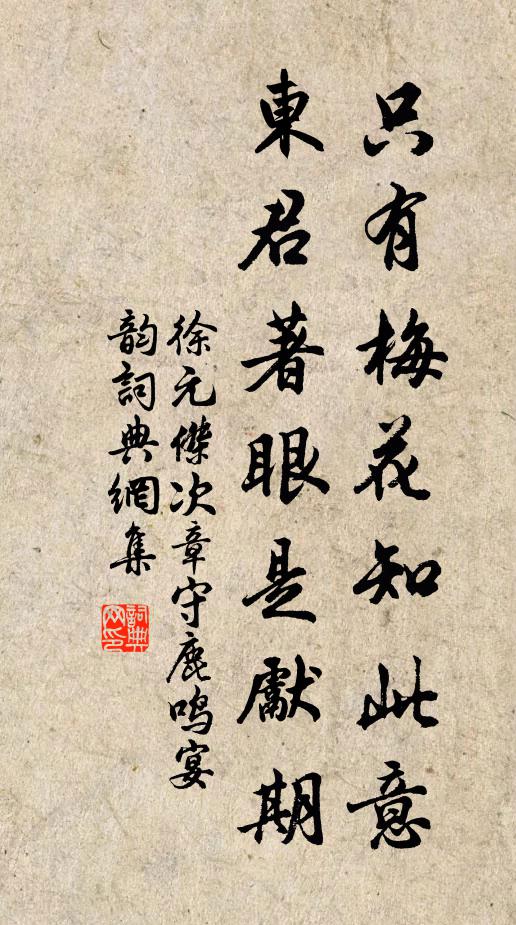 只有梅花知此意
東君著眼是獻期
徐元傑次章守鹿鳴宴
韵詞典網集
詞典网印